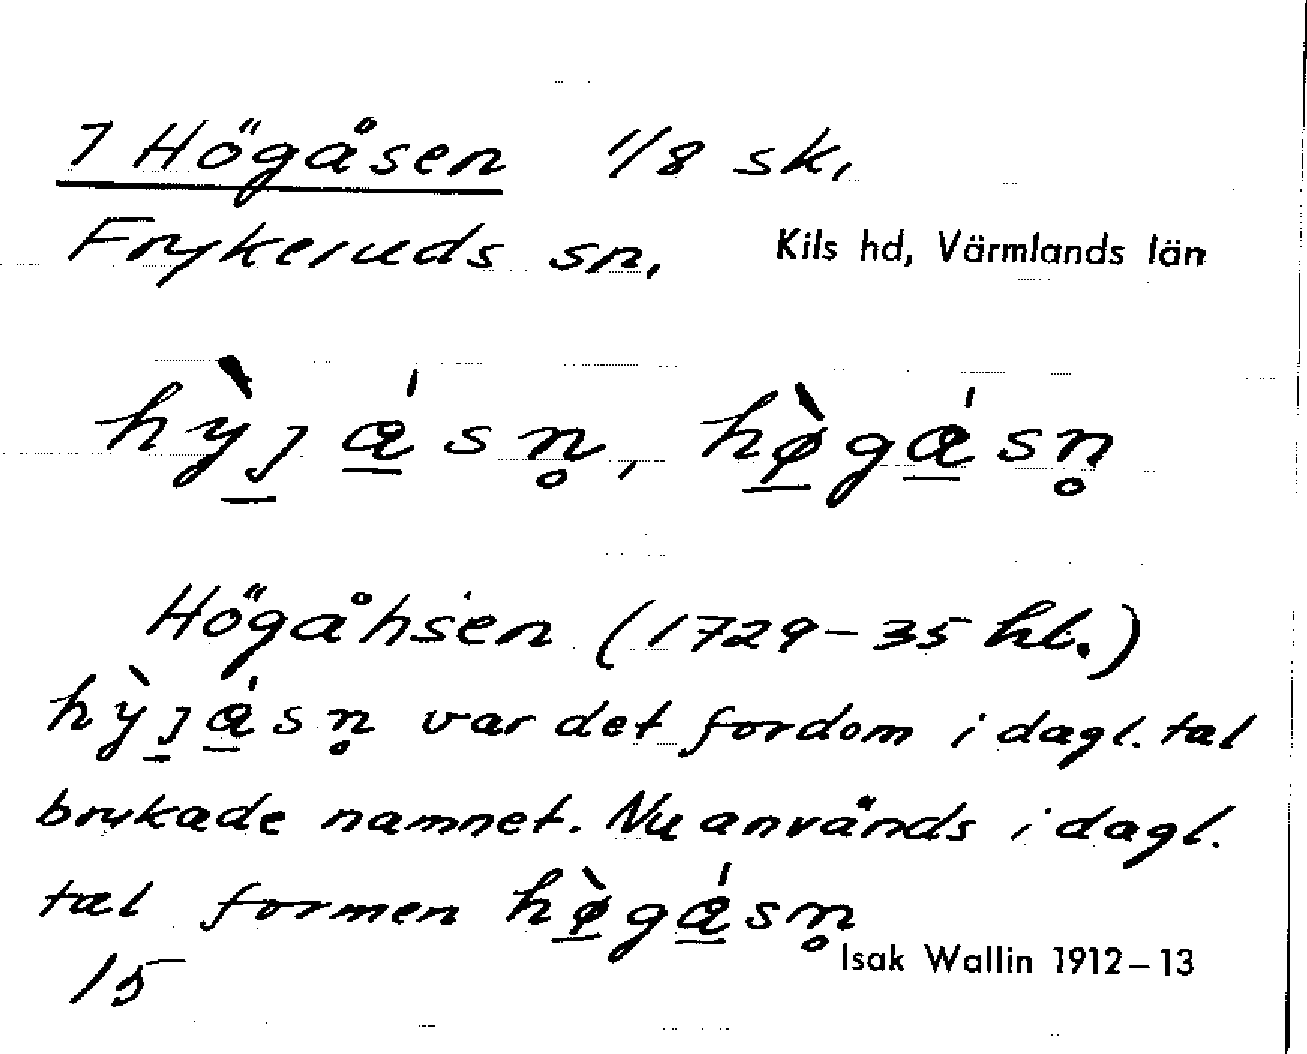 7 Högåsen 1/8 sk.
Frykeruds sn. Kils hd, Värmlands län
hỳȷa̲̍sn̥, hø̲̀ga̲̍sn̥
Högåhsen (1729–35 hl.)
hỳȷa̲̍sn̥ var det fordom i dagl. tal
brukade namnet. Nu används i dagl.
tal formen hø̲̀ga̲̍sn̥
15 Isak Wallin 1912–13